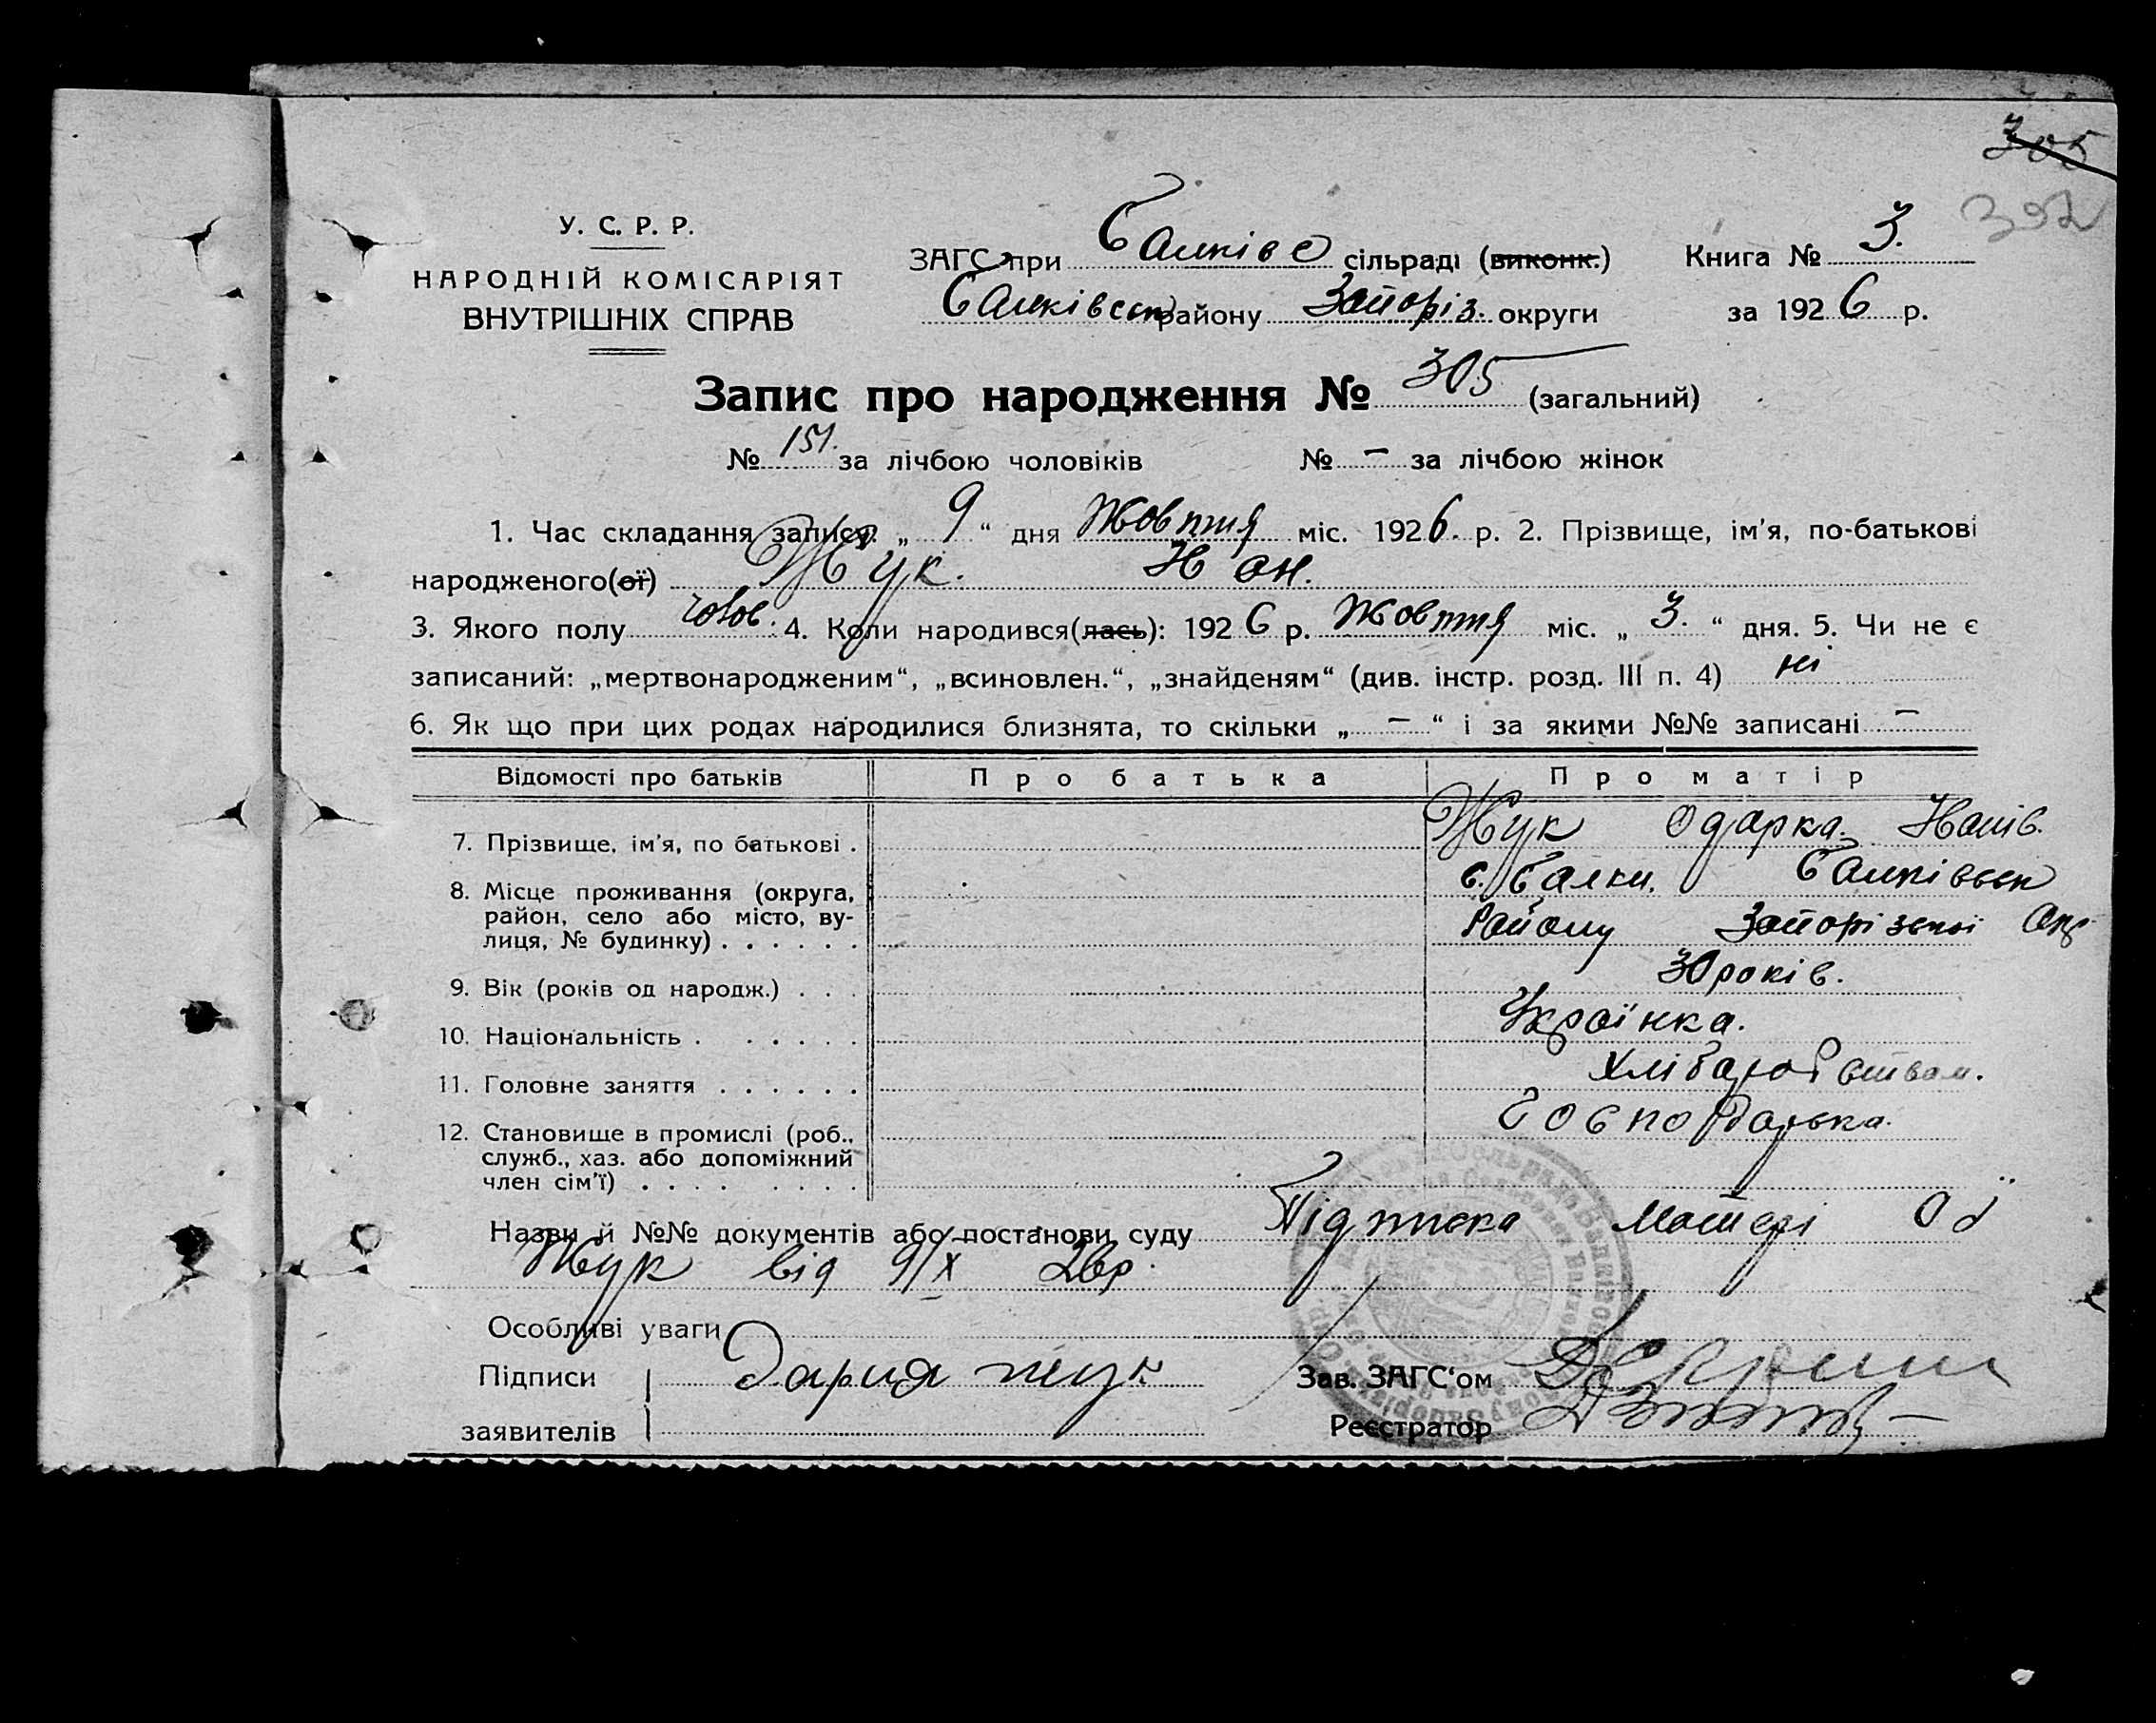 305
392
У. С. Р. Р.
НАРОДНІЙ КОМІСАРІЯТ
ВНУТРІШНІХ СПРАВ
ЗАГС при Балківс сільраді (виконк.) Книга № 3.
Балківськ району Запоріз. округи за 1926 р.
Запис про народження № 305 (загальний)
№ 151. за лічбою чоловіків № — за лічбою жінок
1. Час складання запису „ 9 “ дня Жовтня міс. 1926. р. 2. Прізвище, ім'я, по-батькові
народженого(ої) Жук.
3. Якого полу чолов. 4. Коли народився(лась): 1926 р. Жовтня міс. „ 3. “ дня. 5. Чи не є
записаний: „мертвонародженим“, „всиновлен.“, „знайденям“ (див. інстр. розд. III п. 4) ні
6. Як що при цих родах народилися близнята, то скільки „ — “ і за якими №№ записані —
Відомості про батьків Про батька Про матір
7. Прізвище, ім'я, по батькові . Жук Одарка
8. Місце проживання (округа, с. Балки. Балківськ
район, село або місто, ву-
лиця, № будинку) . . . . . . Району Запорізької Окр
9. Вік (років од народж.) . . . 30 років.
10. Національність . . . . . . Українка.
11. Головне заняття . . . . . . Хліборобством.
12. Становище в промислі (роб., Господарька.
служб., хаз. або допоміжний
член сім'ї) . . . . . . . .
Назви й №№ документів або постанови суду Підписка Матері
Жук від 9/X 26р.
Особливі уваги
Підписи Дария жук Зав. ЗАГС'ом
заявителів Реєстратор